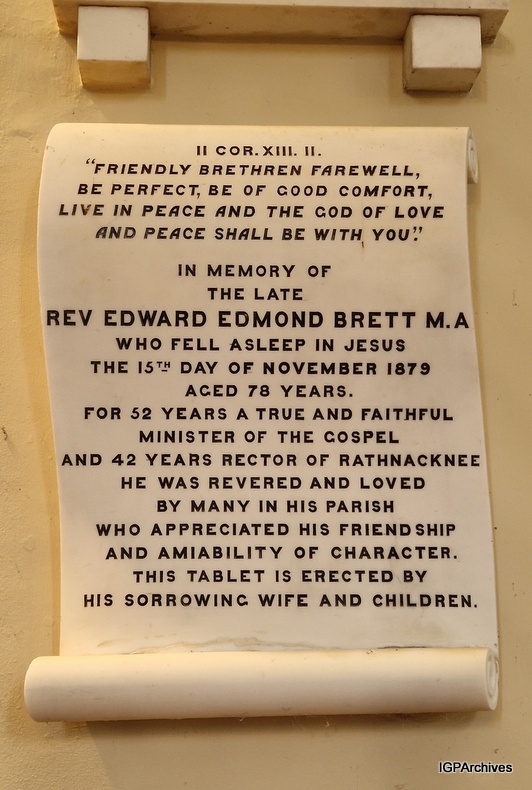 II COR. XIII. II.
"FRIENDLY BRETHREN FAREWELL,
BE PERFECT, BE OF GOOD COMFORT,
LIVE IN PEACE AND THE GOD OF LOVE
AND PEACE SHALL BE WITH YOU."
IN MEMORY OF
THE LATE
REV EDWARD EDMOND BRETT M.A
WHO FELL ASLEEP IN JESUS
THE 15TH DAY OF NOVEMBER 1879
AGED 78 YEARS.
FOR 52 YEARS A TRUE AND FAITHFUL
MINISTER OF THE GOSPEL
AND 42 YEARS RECTOR OF RATHNACKNEE
HE WAS REVERED AND LOVED
BY MANY IN HIS PARISH
WHO APPRECIATED HIS FRIENDSHIP
AND AMIABILITY OF CHARACTER.
THIS TABLET IS ERECTED BY
HIS SORROWING WIFE AND CHILDREN.
IGPArchives